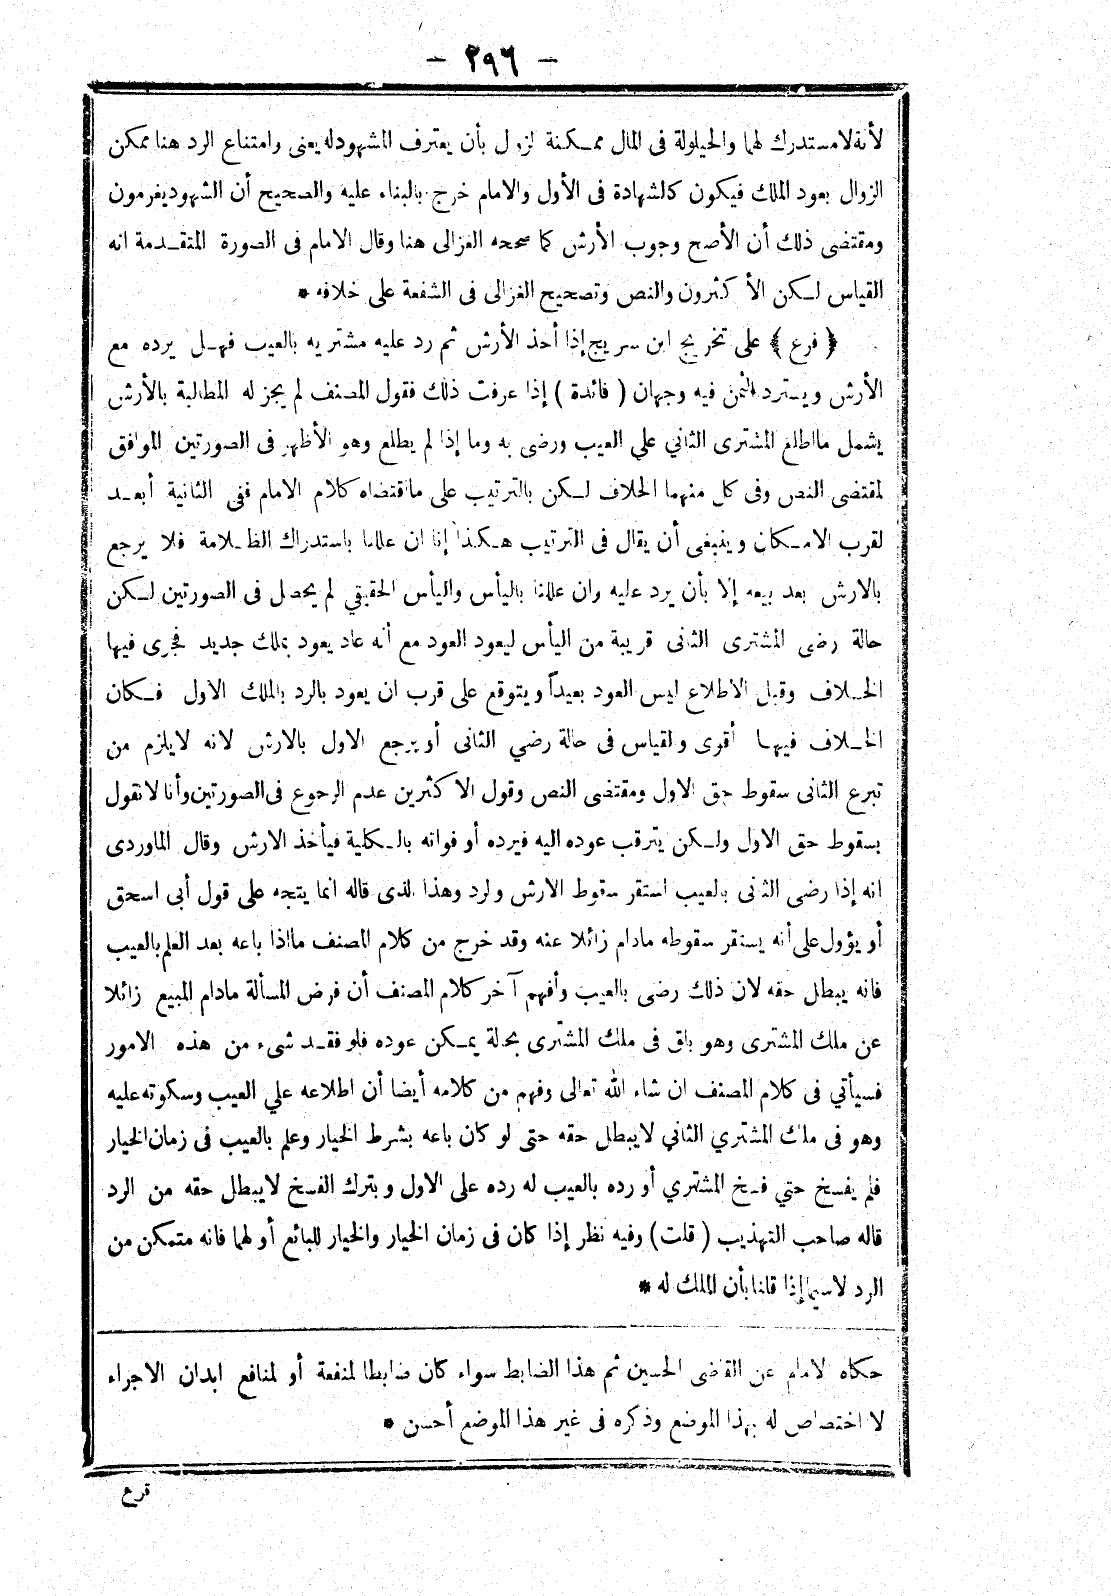 - ٢٩٦ -
لأنه لا مستدرك لها والحيلولة فى المال ممكنة الزوال بأن يعترف المشهود له يعنى وامتناع الرد هنا ممكن
الزوال بعود الملك فيكون كالشهادة فى الأول والامام خرج بالبناء عليه والصحيح أن الشهود يغرمون
ومقتضى ذلك أن الأصح وجوب الأرش كما صححه الغزالى هنا وقال الامام فى الصورة المتقدمة انه
القياس لكن الأكثرون والنص وتصحيح الغزالى فى الشفعة على خلافه *
﴿ فرع ﴾ على تخريج ابن سريج إذا أخذ الأرش ثم رد عليه مشتريه بالعيب فهل يرده مع
الأرش ويسترد الثمن فيه وجهان ( فائدة ) إذا عرفت ذلك فقول المصنف لم يجز له المطالبة بالأرش
يشمل ما اطلع المشترى الثاني علي العيب ورضى به وما إذا لم يطلع وهو الأظهر فى الصورتين الموافق
لمقتضى النص وفى كل منهما الخلاف لكن بالترتيب على ما اقتضاه كلام الامام ففى الثانية أبعد
لقرب الامكان وينبغى أن يقال فى الترتيب هكذا إنا ان عللنا باستدراك الظلامة فلا يرجع
بالارش بعد بيعه إلا بأن يرد عليه وان عللنا باليأس واليأس الحقيقي لم يحصل فى الصورتين لكن
حالة رضى المشترى الثانى قريبة من اليأس ليعود العود مع أنه عاد يعود بملك جديد فجرى فيها
الخلاف وقبل الاطلاع ليس العود بعيداً ويتوقع على قرب ان يعود بالرد بالملك الاول فكان
الخلاف فيها أقوى والقياس فى حالة رضي الثانى أو يرجع الاول بالارش لانه لا يلزم من
تبرع الثانى سقوط حق الاول ومقتضى النص وقول الاكثرين عدم الرجوع فى الصورتين وأنا لا نقول
بسقوط حق الاول ولكن يترقب عوده اليه فيرده أو فواته بالكلية فيأخذ الارش وقال الماوردى
انه إذا رضى الثانى بالعيب استقر سقوط الارش والرد وهذا الذى قاله انما يتجه على قول أبى اسحق
أو يؤول على أنه يستقر سقوطه مادام زائلا عنه وقد خرج من كلام المصنف ما اذا باعه بعد العلم بالعيب
فانه يبطل حقه لان ذلك رضى بالعيب وأفهم آخر كلام المصنف أن فرض المسألة مادام المبيع زائلا
عن ملك المشترى وهو باق فى ملك المشترى بحالة يمكن عوده فلو فقد شىء من هذه الامور
فسيأتي فى كلام المصنف ان شاء الله تعالى وفهم من كلامه أيضا أن اطلاعه علي العيب وسكوته عليه
وهو فى ملك المشتري الثاني لا يبطل حقه حتى لو كان باعه بشرط الخيار وعلم بالعيب فى زمان الخيار
فلم يفسخ حتي فسخ المشتري أو رده بالعيب له رده على الاول وبترك الفسخ لا يبطل حقه من الرد
قاله صاحب التهذيب ( قلت ) وفيه نظر إذا كان فى زمان الخيار والخيار للبائع أو لهما فانه متمكن من
الرد لاسيما إذا قلنا بأن الملك له *
حكاه الامام عن القاضى الحسين ثم هذا الضابط سواء كان ضابطا لمنفعة أو لمنافع ابدان الاجراء
لا اختصاص له بهذا الموضع وذكره فى غير هذا الموضع أحسن *
فرع